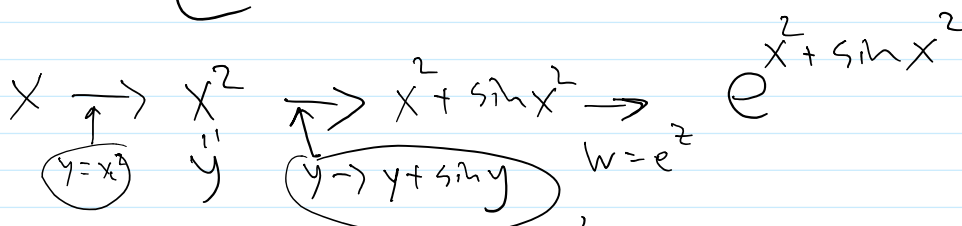 x → x² → x² + sin x² → e^{x² + sin x²}
y = x² y y → y + sin y w = e^z